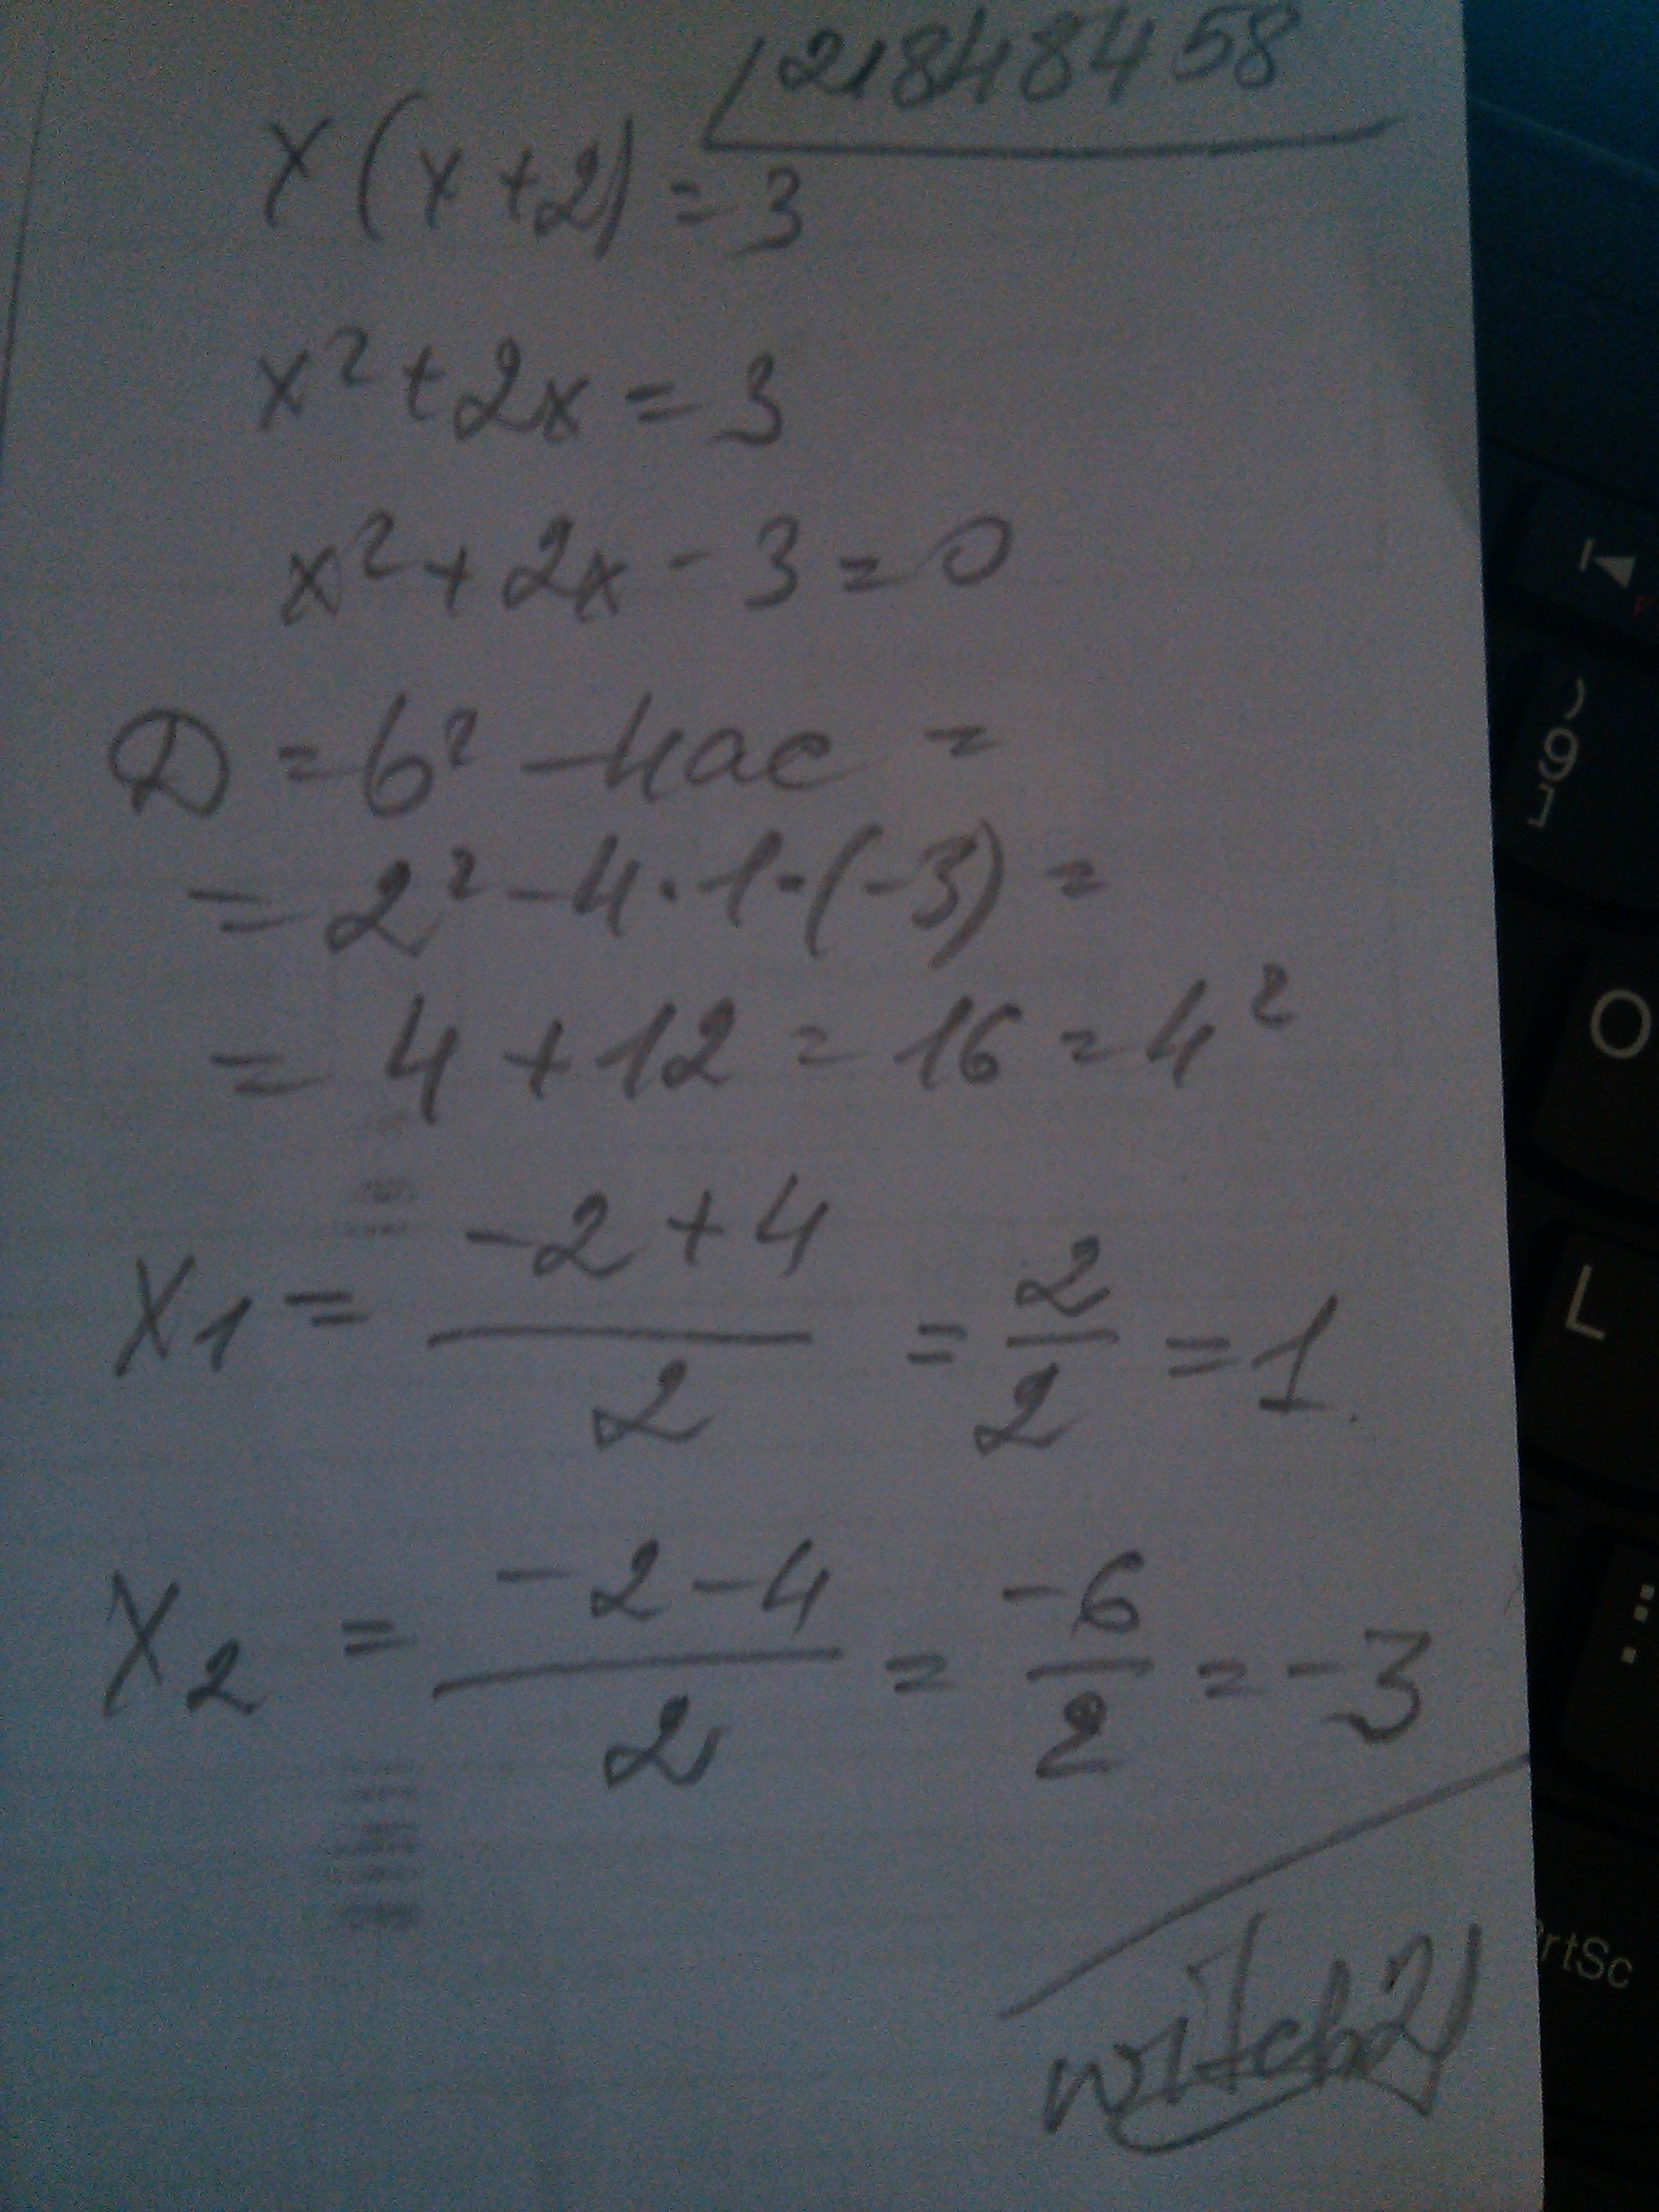 21848458
x(x+2)=3
x²+2x=3
x²+2x-3=0
D=b²-4ac=
=2²-4·1·(-3)=
=4+12=16=4²
x₁=(-2+4)/2=2/2=1.
x₂=(-2-4)/2=-6/2=-3
witch21
O
L
PrtSc